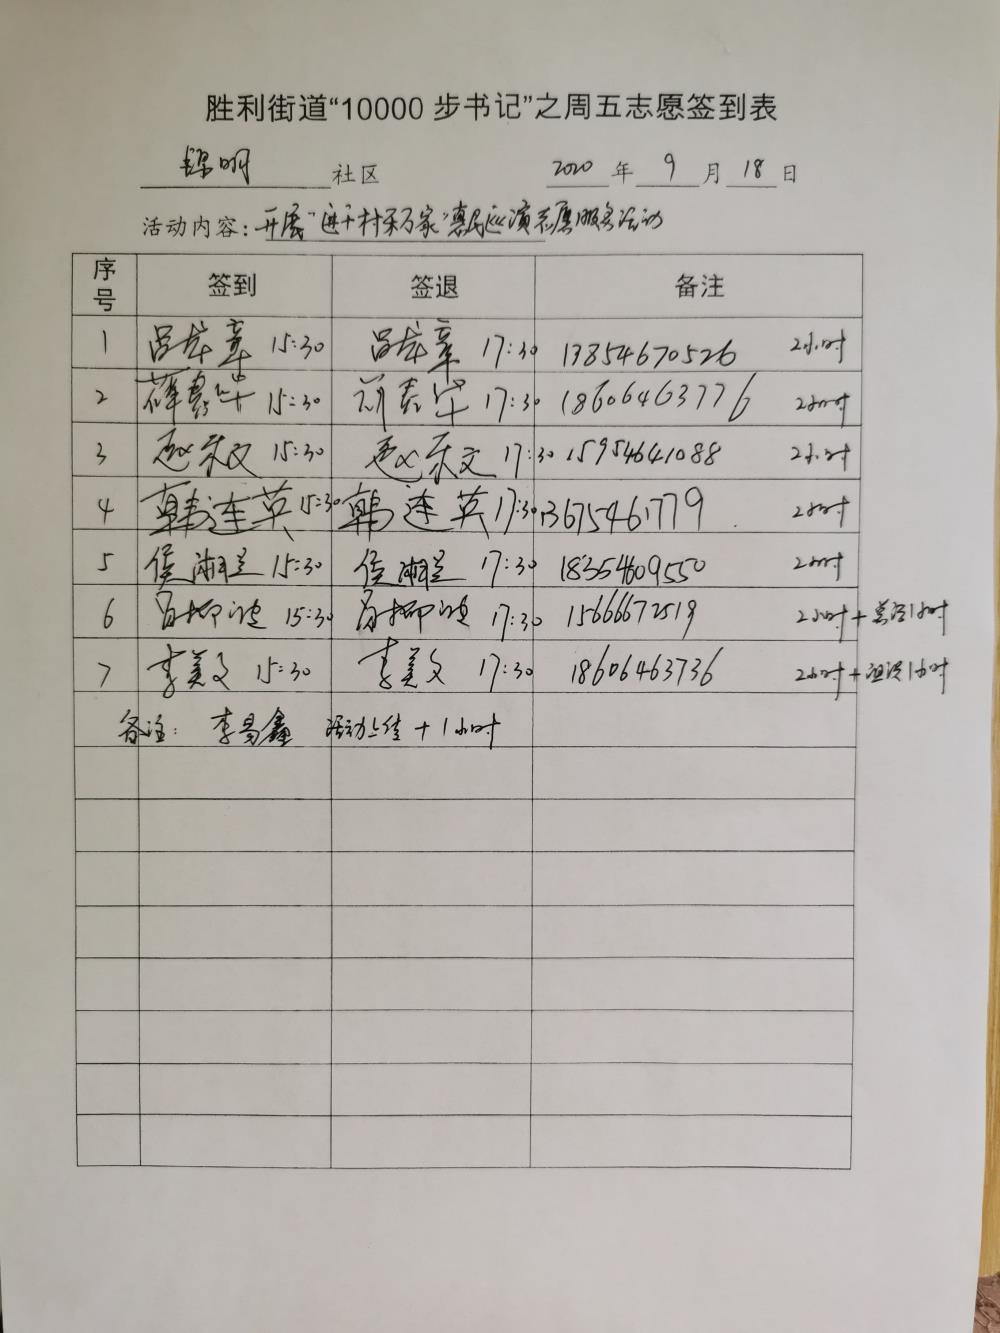 胜利街道“10000步书记”之周五志愿签到表
锦明社区 2020年9月18日
活动内容：开展“进千村入万家”惠民巡演志愿服务活动
序号 签到 签退 备注
1 吕龙章 15:30 吕龙章 17:30 13854670526 2小时
2 15:30 17:30 18606463776 2小时
3 赵乐文 15:30 赵乐文 17:30 15954641088 2小时
4 韩连英 15:30 韩连英 17:30 13675461779 2小时
5 侯湘兰 15:30 侯湘兰 17:30 18354609550 2小时
6 15:30 17:30 15666672519 2小时+1小时
7 李美文 15:30 李美文 17:30 18606463736 2小时+1小时
备注：李易鑫 活动上传+1小时